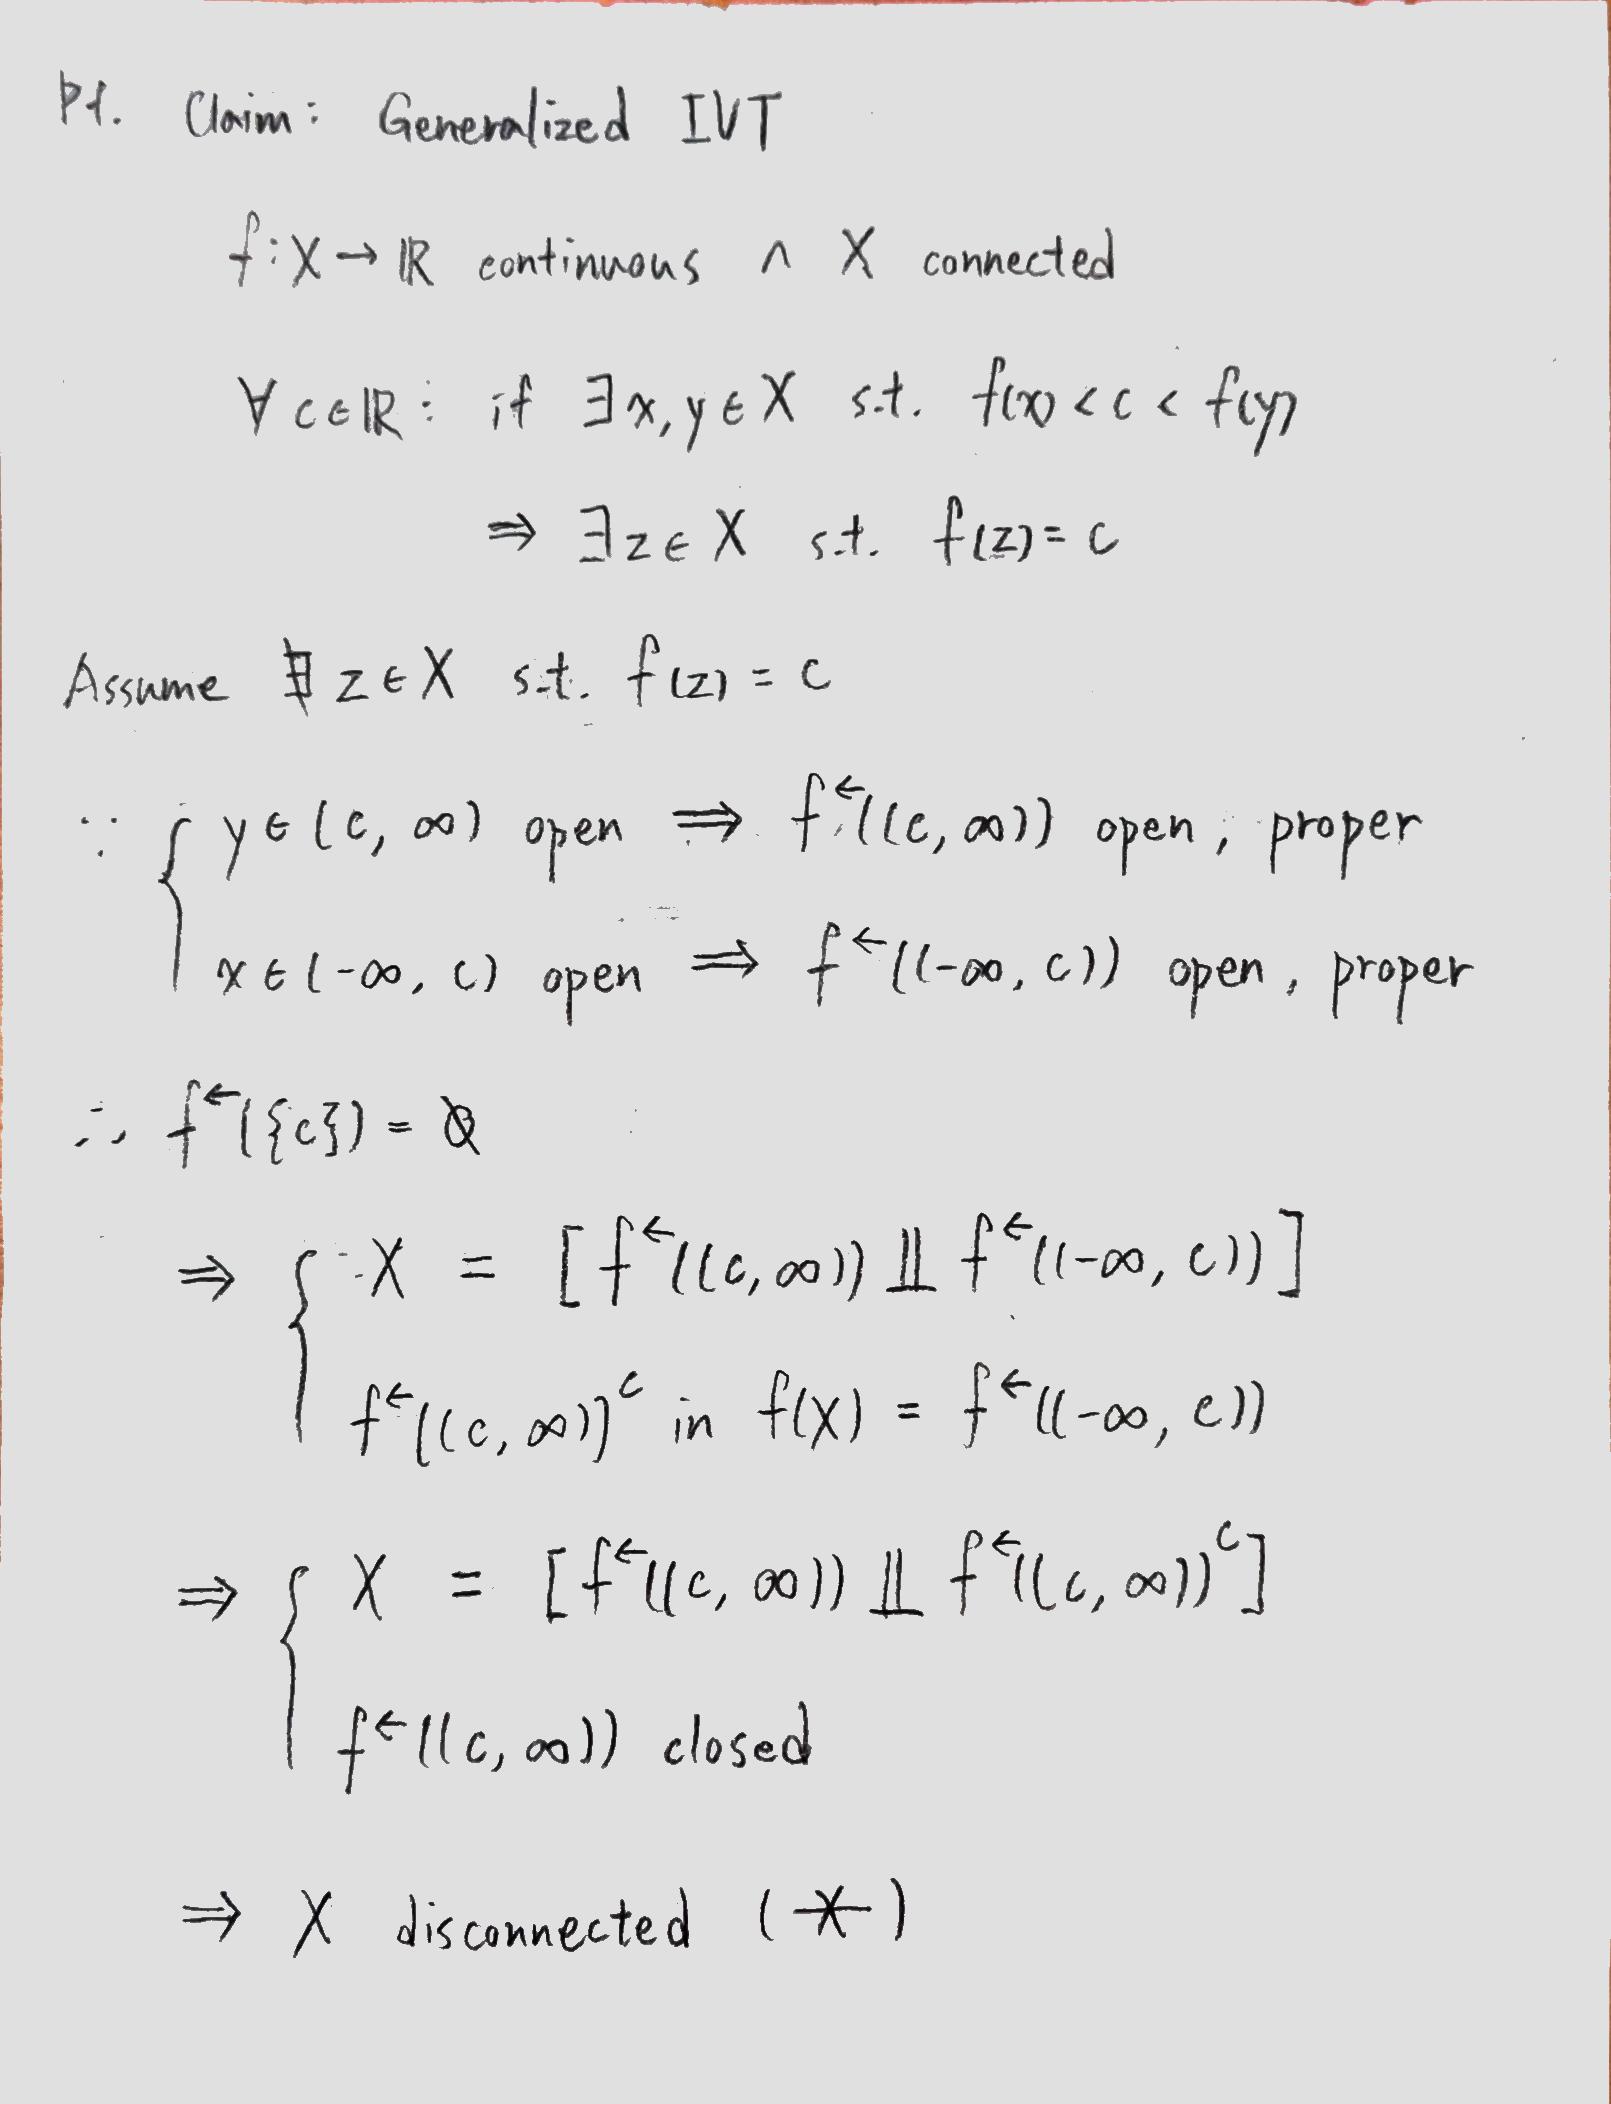 Pf. Claim: Generalized IVT
f: X → ℝ continuous ∧ X connected
∀ c ∈ ℝ: if ∃ x, y ∈ X s.t. f(x) < c < f(y)
⇒ ∃ z ∈ X s.t. f(z) = c
Assume ∄ z ∈ X s.t. f(z) = c
∵ { y ∈ (c, ∞) open ⇒ f^←((c, ∞)) open, proper
x ∈ (-∞, c) open ⇒ f^←((-∞, c)) open, proper
∴ f^←({c}) = ∅
⇒ { X = [f^←((c, ∞)) ⫫ f^←((-∞, c))]
f^←((c, ∞))^c in f(X) = f^←((-∞, c))
⇒ { X = [f^←((c, ∞)) ⫫ f^←((c, ∞))^c]
f^←((c, ∞)) closed
⇒ X disconnected (⚹)